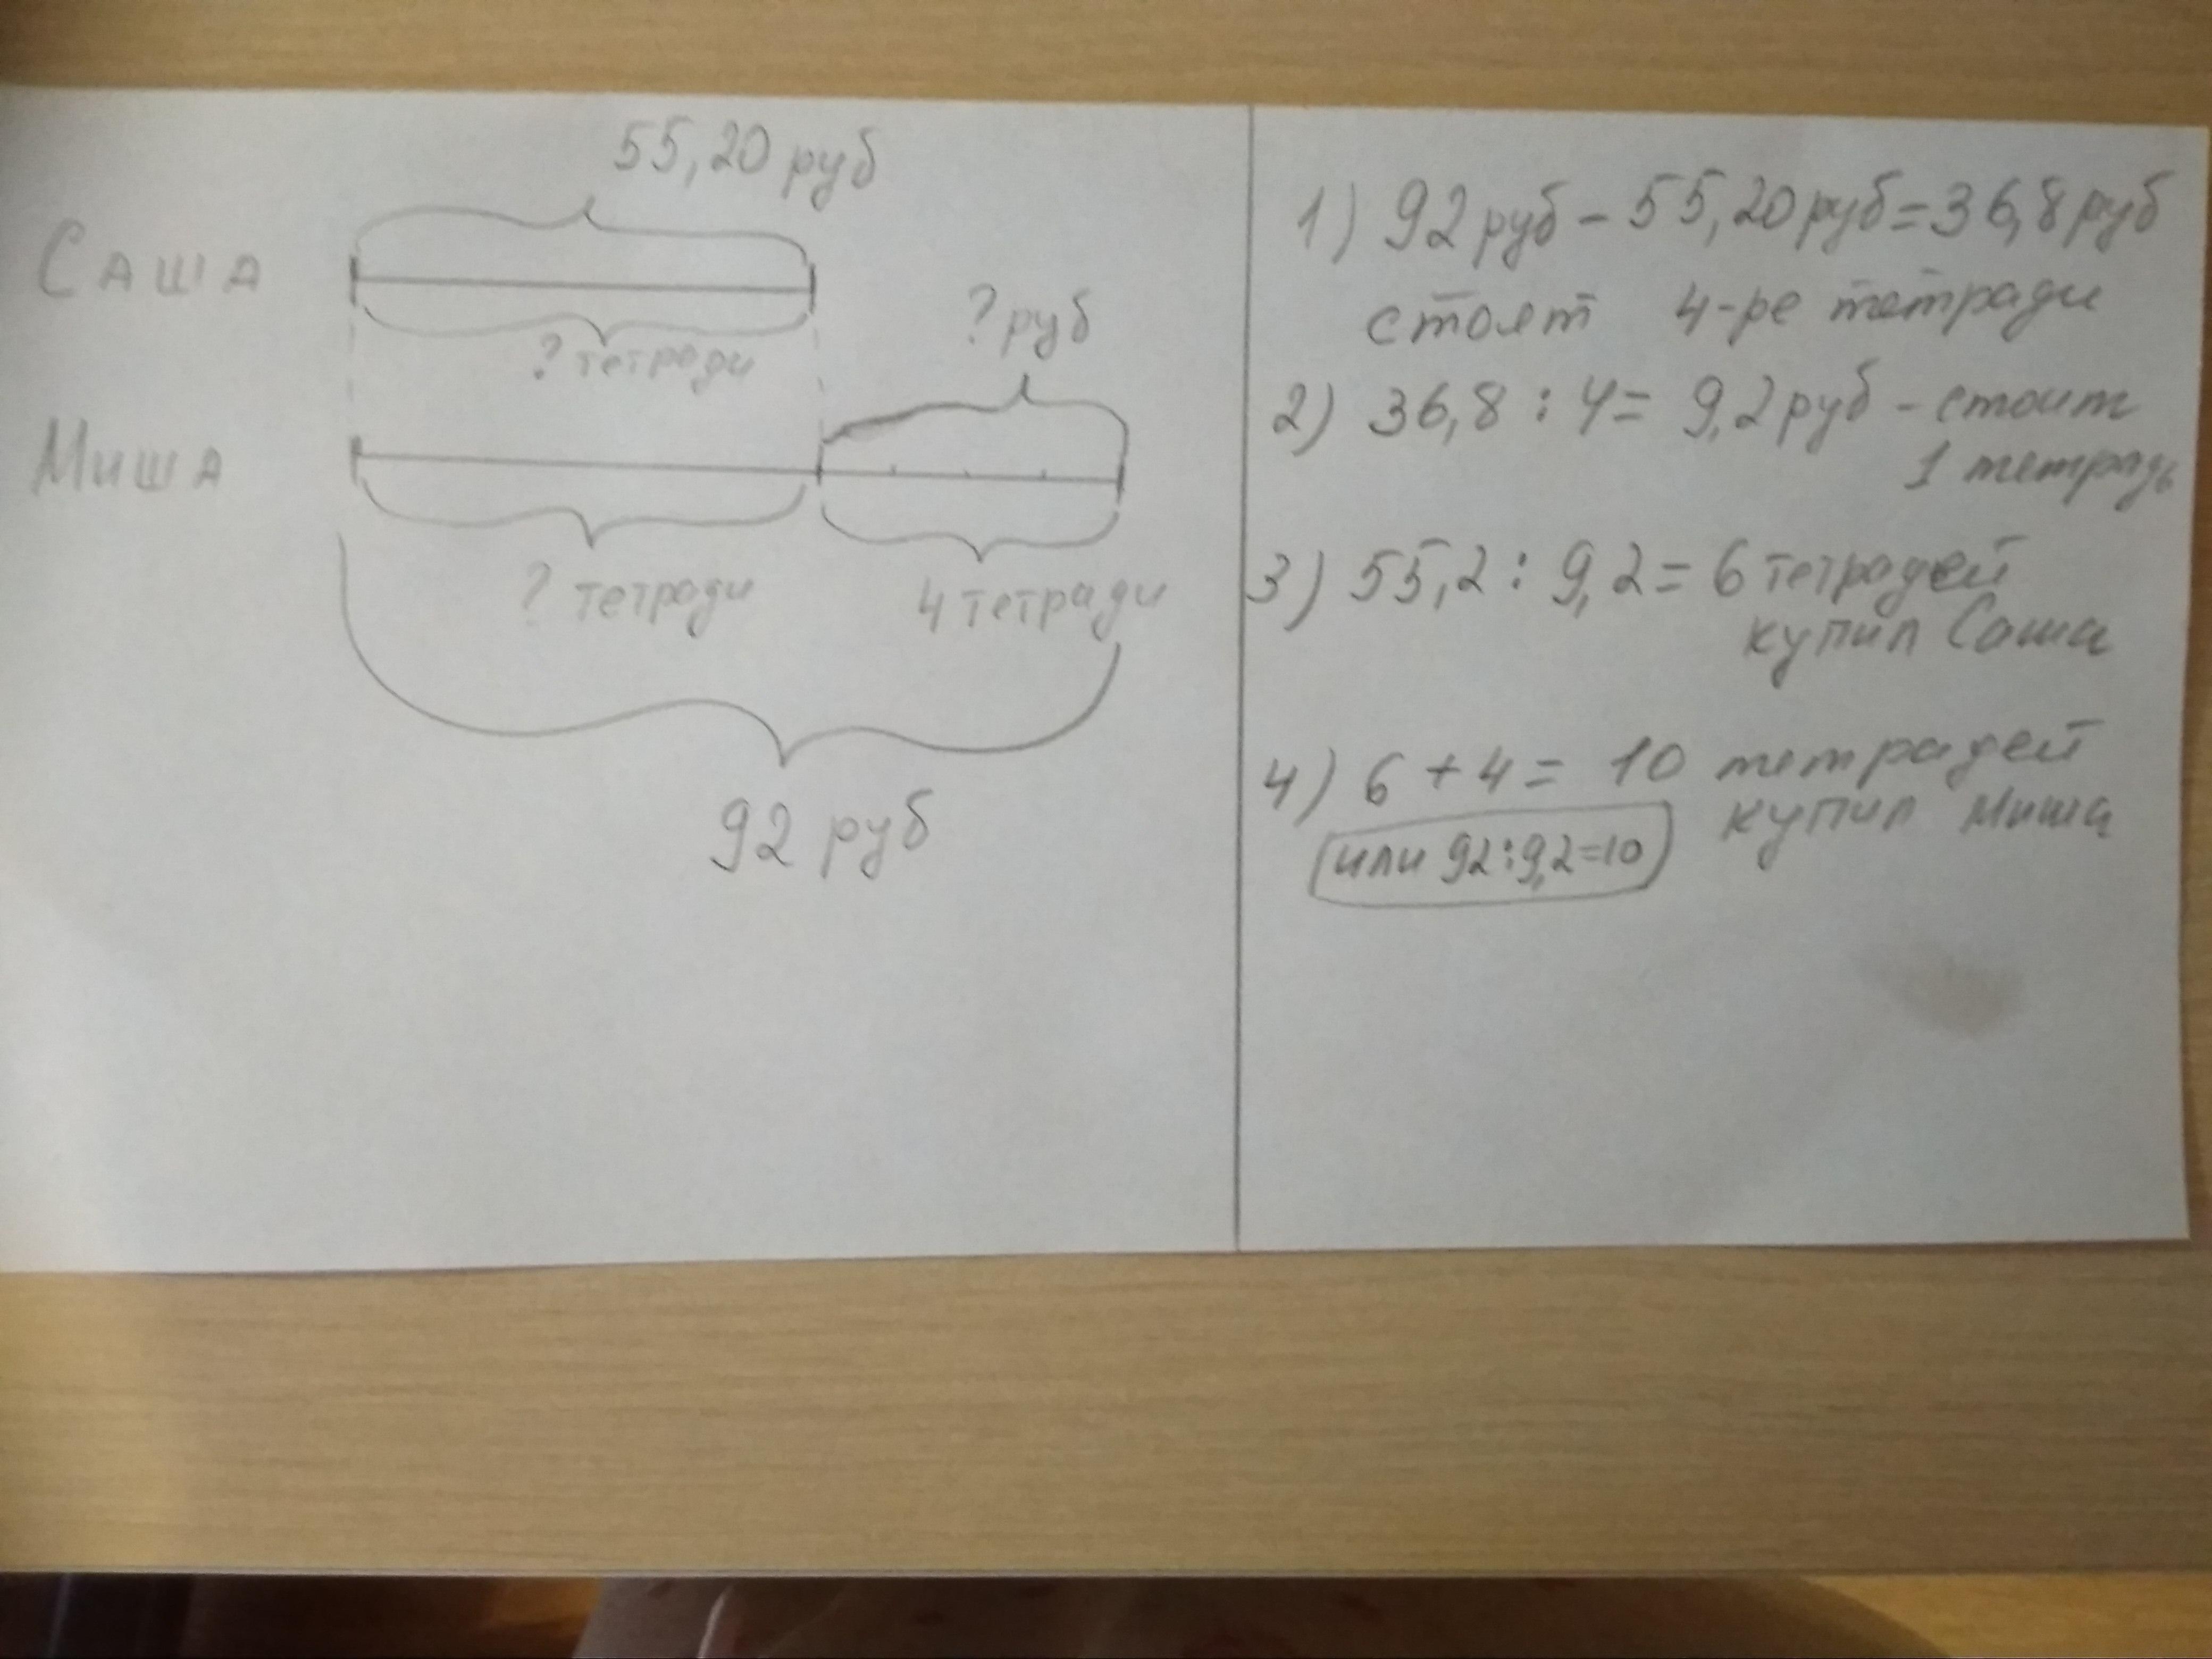 55,20 руб
Саша
? тетради
? руб
Миша
? тетради
4 тетради
92 руб
1) 92 руб - 55,20 руб = 36,8 руб
стоят 4-ре тетради
2) 36,8 : 4 = 9,2 руб - стоит
1 тетрадь
3) 55,2 : 9,2 = 6 тетрадей
купил Саша
4) 6 + 4 = 10 тетрадей
купил Миша
или 92:9,2=10